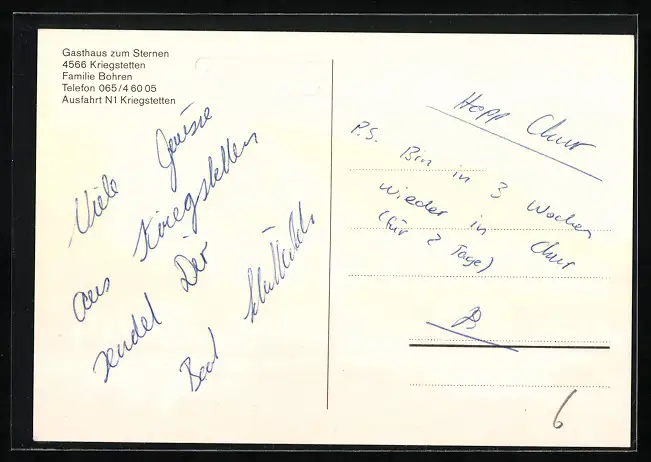 Gasthaus zum Sternen
4566 Kriegstetten
Familie Bohren
Telefon 065/4 60 05
Ausfahrt N1 Kriegstetten
Viele Grüsse
aus Kriegstetten
sendet Dir
Beat
Hopp Chur
P.S. Bin in 3 Wochen
wieder in Chur
(für 2 Tage)
B
6